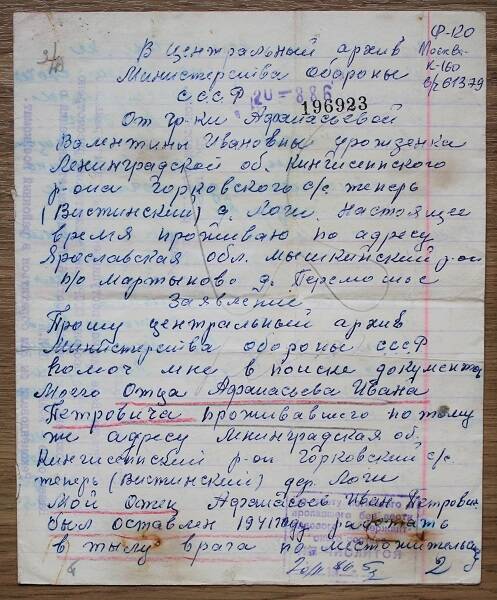 Ф-120
Москва-
К-160
в/ч 61379
В центральный архив
Министерства обороны
С.С.С.Р
196923
От гр-ки Афанасьевой
Валентины Ивановны урожденка
Ленинградской об. Кингисеппского
р-она Горковского с/с теперь
(Вистинский) д. Логи. Настоящее
время проживаю по адресу
Ярославская обл. Мышкийский р-он
п/о Мартыново д. Перемошье
Заявление
Прошу центральный архив
Министерства обороны СССР
помоч мне в поиске документов
Моего Отца Афанасьева Ивана
Петровича проживавшего по тому
же адресу Ленинградская об.
Кингисеппский р-он Горковский с/с
теперь (Вистинский) дер. Логи
Мой Отец Афанасьев Иван Петрович
был оставлен 1941 году работать
в тылу врага по местожительству
2